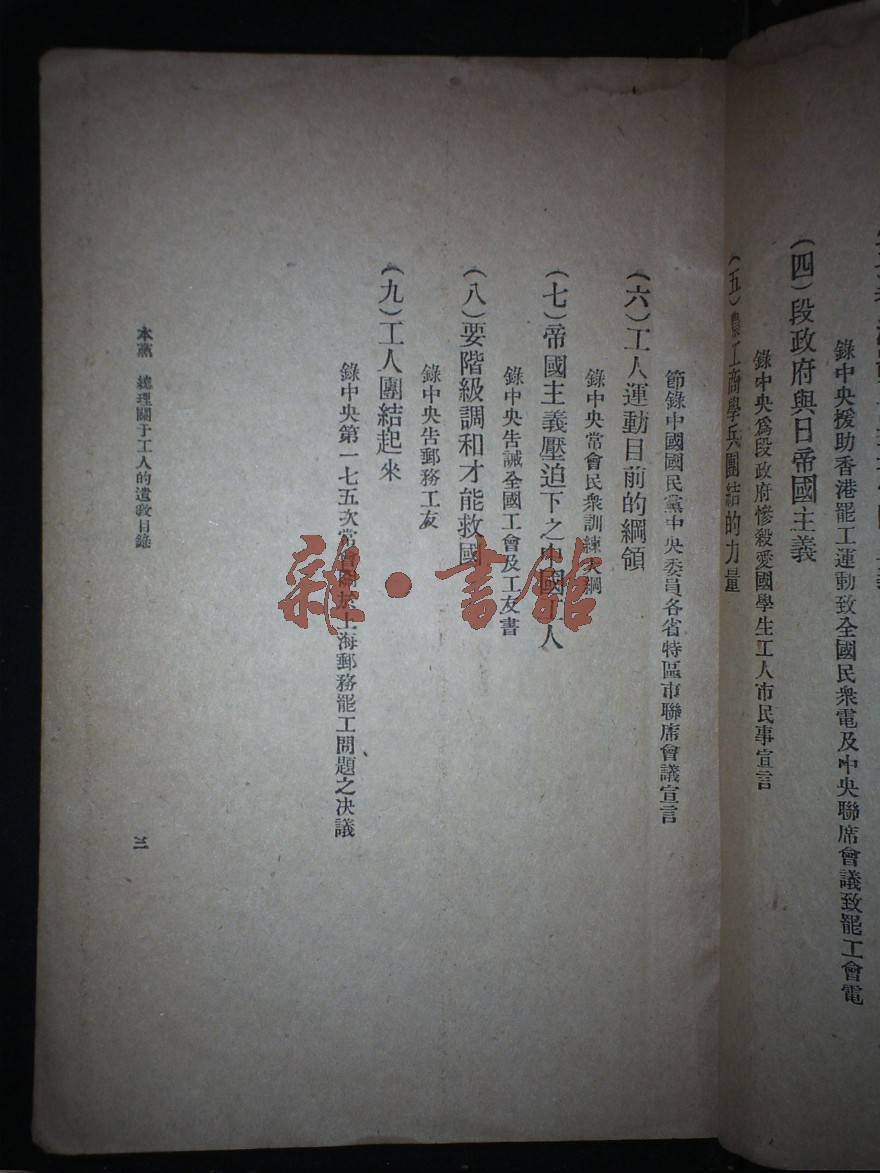 錄中央援助香港罷工運動致全國民衆電及中央聯席會議致罷工會電
(四)段政府與日帝國主義
錄中央爲段政府慘殺愛國學生工人市民事宣言
(五)農工商學兵團結的力量
節錄中國國民黨中央委員各省特區市聯席會議宣言
(六)工人運動目前的綱領
錄中央常會民衆訓練大綱
(七)帝國主義壓迫下之中國工人
錄中央告誡全國工會及工友書
(八)要階級調和才能救國
錄中央告郵務工友
(九)工人團結起來
錄中央第一七五次常會關於上海郵務罷工問題之决議
本黨 總理關于工人的遺敎目錄
三
雜·書館